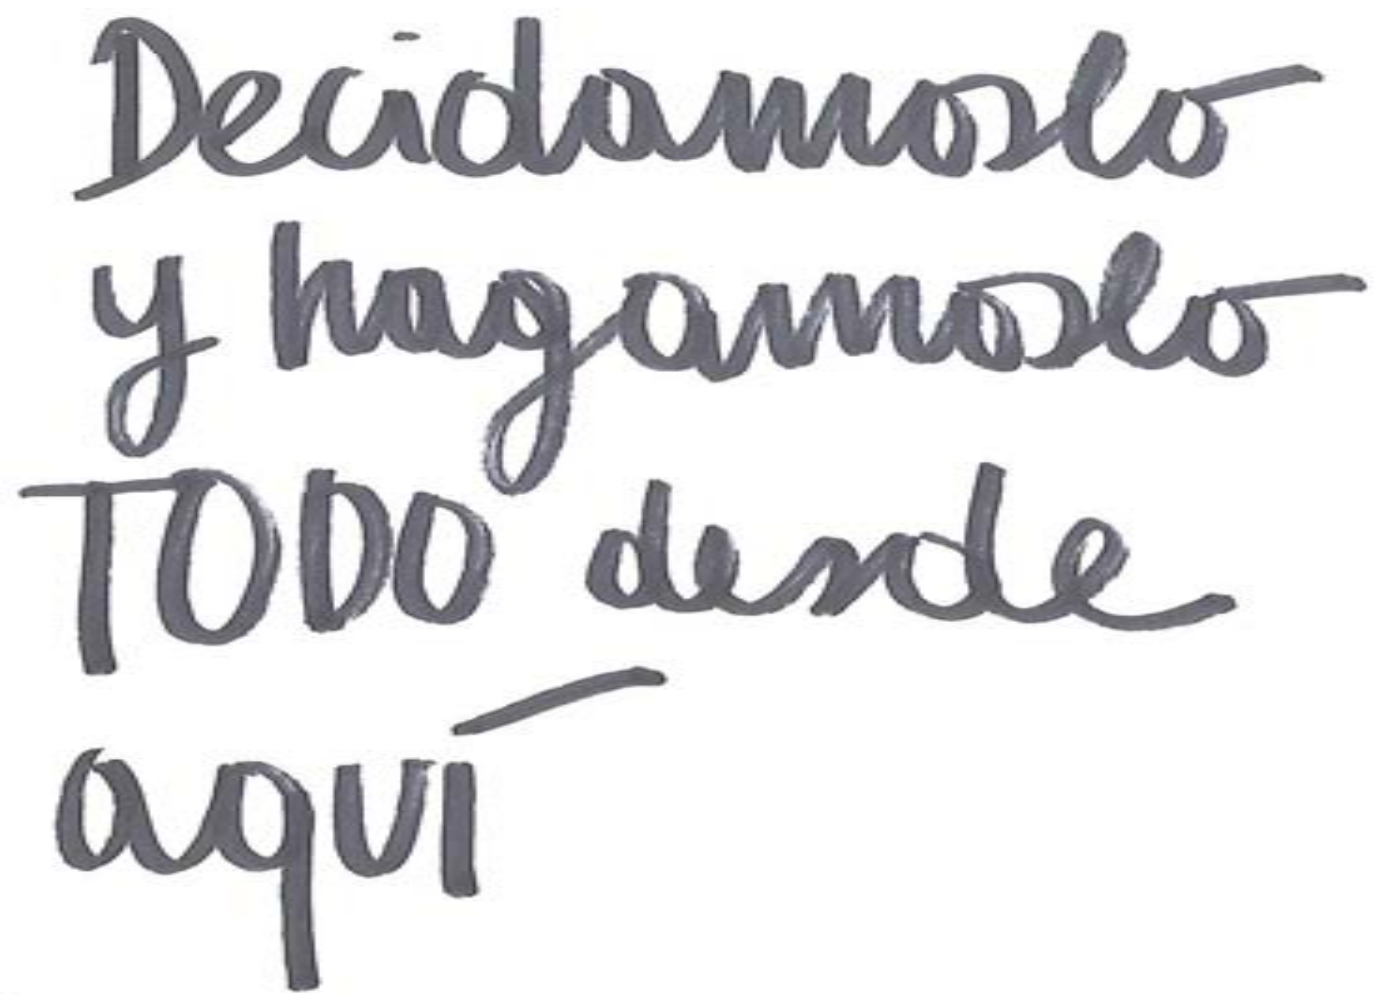 Decidamoslo
y hagamoslo
TODO desde
aquí